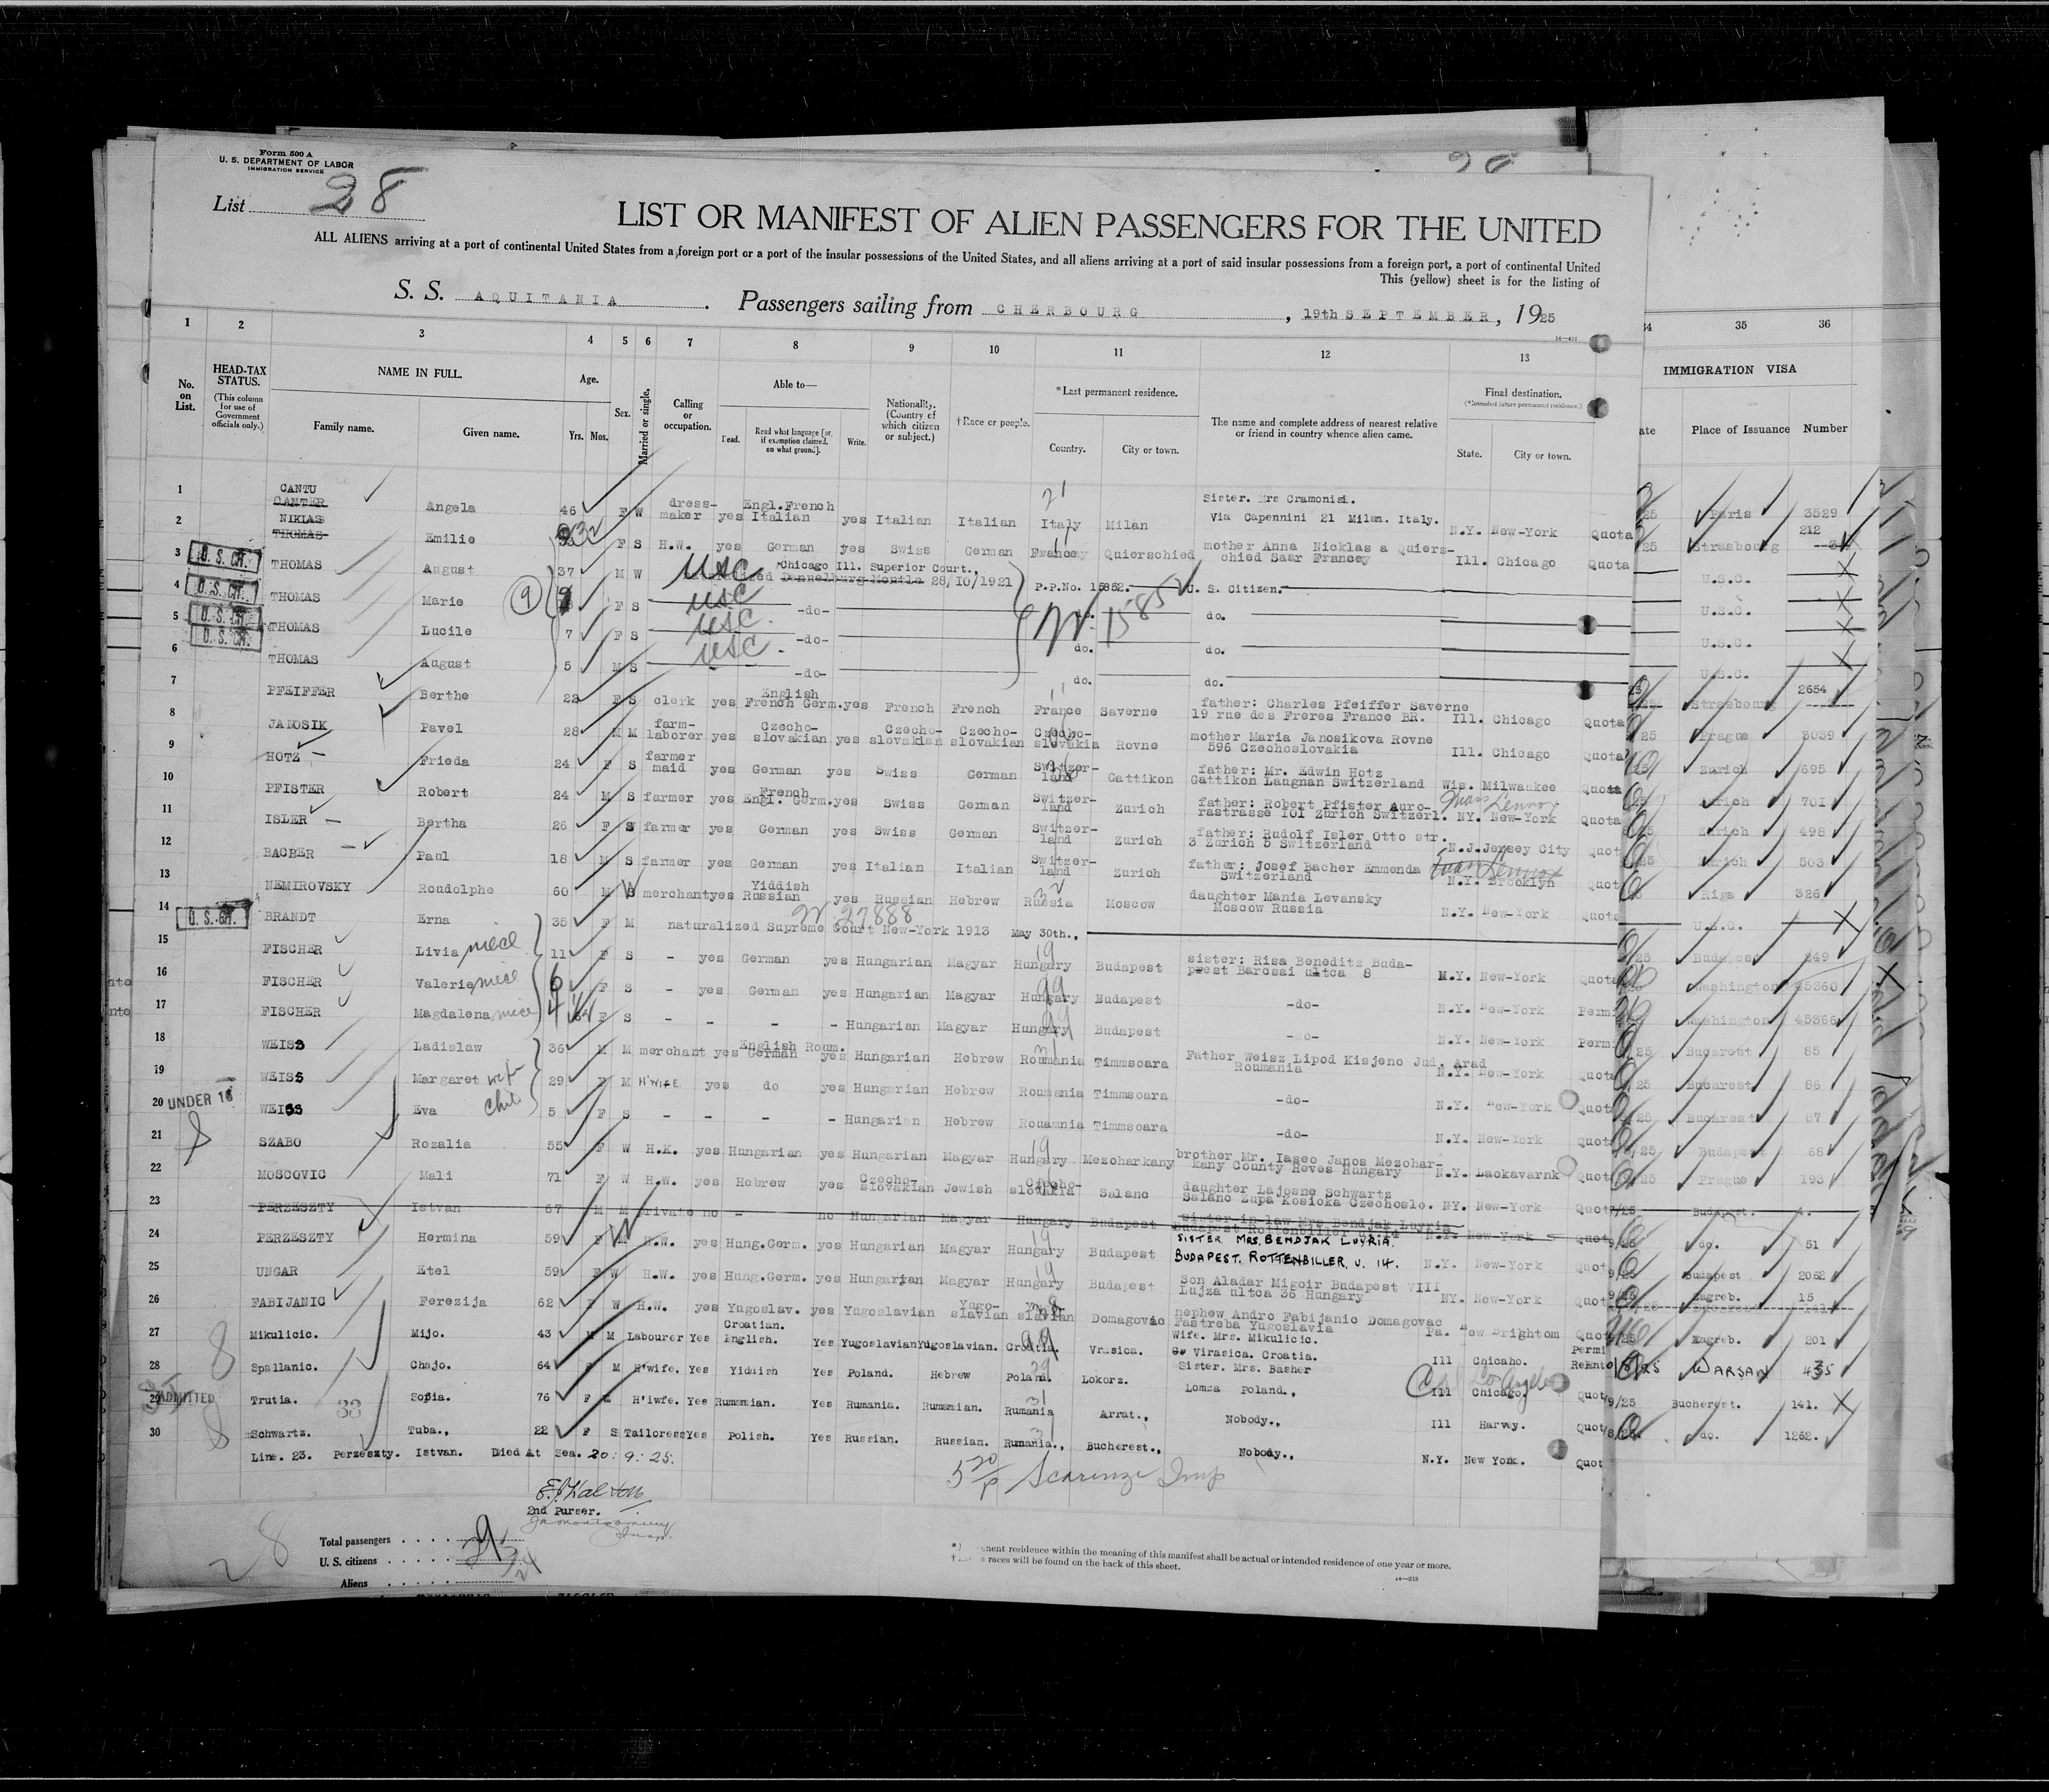 Form 500 A
U. S. DEPARTMENT OF LABOR
IMMIGRATION SERVICE
List 28
LIST OR MANIFEST OF ALIEN PASSENGERS FOR THE UNITED
ALL ALIENS arriving at a port of continental United States from a foreign port or a port of the insular possessions of the United States, and all aliens arriving at a port of said insular possessions from a foreign port, a port of continental United
This (yellow) sheet is for the listing of
S. S. AQUITANIA. Passengers sailing from CHERBOURG, 19th SEPTEMBER, 1925
1 2 3 4 5 6 7 8 9 10 11 12 13 35 36
No. on List.
HEAD-TAX STATUS.
(This column for use of Government officials only.)
NAME IN FULL.
Family name. Given name.
Age.
Yrs. Mos.
Sex.
Married or single.
Calling or occupation.
Able to—
Read. Read what language [or, if exemption claimed, on what ground]. Write.
Nationality. (Country of which citizen or subject.)
†Race or people.
*Last permanent residence.
Country. City or town.
The name and complete address of nearest relative or friend in country whence alien came.
Final destination.
(*Intended future permanent residence.)
State. City or town.
IMMIGRATION VISA
Place of Issuance Number
1 CANTU CANTER Angela 46 F W dress-maker yes Engl.French Italian yes Italian Italian Italy Milan Sister. Mrs Cramonisi. Via Capennini 21 Milan. Italy. N.Y. New-York Quota Paris 3529
2 NIKLAS THOMAS Emilie F S H.W. yes German yes Swiss German Francey Quierschied mother Anna Nicklas a Quiers-chied Saar Francey Ill. Chicago Quota Strasbourg 212
3 U. S. CIT. THOMAS August 37 M W USC Chicago Ill. Superior Court., 28/10/1921 P.P.No. 15852. U. S. Citizen. U.S.C.
4 U. S. CIT. THOMAS Marie F S USC -do- do. do. U.S.C.
5 U. S. CIT. THOMAS Lucile 7 F S USC -do- do. do. U.S.C.
6 U. S. CIT. THOMAS August 5 M S USC -do- do. do. U.S.C.
7 PFEIFFER Berthe 23 F S clerk yes English French Germ. yes French French France Saverne father: Charles Pfeiffer Saverne 19 rue des Freres France BR. Ill. Chicago Quota Strasbourg 2654
8 JANOSIK Pavel 28 M M farm-laborer yes Czecho-slovakian yes Czecho-slovakian Czecho-slovakian Czecho-slovakia Rovne mother Maria Janosikova Rovne 596 Czechoslovakia Ill. Chicago Quota Prague 3039
9 HOTZ Frieda 24 F S farmer maid yes German yes Swiss German Switzer-land Gattikon father: Mr. Edwin Hotz Gattikon Laugnan Switzerland Wis. Milwaukee Quota Zurich 695
10 PFISTER Robert 24 M S farmer yes French Engl. Germ. yes Swiss German Switzer-land Zurich father: Robert Pfister Auro-rastrasse 101 Zurich Switzerl. NY. New-York Quota Zurich 701
11 ISLER Bertha 26 F S farmer yes German yes Swiss German Switzer-land Zurich father: Rudolf Isler Otto str. 3 Zurich 5 Switzerland N.J. Jersey City Quot Zurich 498
12 BACHER Paul 18 M S farmer yes German yes Italian Italian Switzer-land Zurich father: Josef Bacher Emmenda Switzerland N.Y. Brooklyn Quot Zurich 503
13 NEMIROVSKY Roudolphe 60 M merchant yes Yiddish Russian yes Russian Hebrew Russia Moscow daughter Mania Levansky Moscow Russia N.Y. New-York Quota Riga 326
14 U. S. CIT. BRANDT Erna 35 F M naturalized Supreme Court New-York 1913 May 30th., 27888 U.S.C.
15 FISCHER Livia niece 11 F S - yes German yes Hungarian Magyar Hungary Budapest sister: Risa Beneditz Buda-pest Barcsai ultca 8 N.Y. New-York Quota Budapest 249
16 FISCHER Valerie niece 6 F S - yes German yes Hungarian Magyar Hungary Budapest -do- N.Y. New-York Permi Washington 45360
17 FISCHER Magdalena niece 4 F S - - - - Hungarian Magyar Hungary Budapest -do- N.Y. New-York Permi Washington 45366
18 WEISS Ladislaw 36 M M merchant yes English Roum. German yes Hungarian Hebrew Roumania Timmsoara Father Weisz Lipod Kisjeno Jud. Arad Roumania N.Y. New-York Quota Bucarest 85
19 WEISS Margaret wife 29 F M H'WIFE yes do yes Hungarian Hebrew Roumania Timmsoara -do- N.Y. New-York Quota Bucarest 86
20 UNDER 16 WEISS Eva child 5 F S - - - - Hungarian Hebrew Rouamnia Timmsoara -do- N.Y. New-York Quot Bucarest 87
21 SZABO Rozalia 55 F W H.K. yes Hungarian yes Hungarian Magyar Hungary Mezoharkany brother Mr. Iaseo Janos Mezohar-kany County Heves Hungary N.Y. Lackavarnk Quot Budapest 68
22 MOSCOVIC Mali 71 F W H.W. yes Hebrew yes Czecho-slovakian Jewish Czecho-slovakia Salanc daughter Lajosne Schwartz Salanc Zupa Kosicka Czechoslo. NY. New-York Quot Prague 193
23 PERZESZTY Istvan 67 M M private no - no Hungarian Magyar Hungary Budapest sister in law Mrs Bendjak Luyria Budapest Rottenbiller N.Y. New-York Quot Budapest.
24 PERZESZTY Hermina 59 F H.W. yes Hung.Germ. yes Hungarian Magyar Hungary Budapest SISTER MRS. BENDJAK LUYRIA. BUDAPEST. ROTTENBILLER. U. 14. N.Y. New-York Quot do. 51
25 UNGAR Etel 59 F W H.W. yes Hung.Germ. yes Hungarian Magyar Hungary Budapest Son Aladar Migoir Budapest VIII Lujza ultca 36 Hungary NY. New-York Quot Budapest 2062
26 FABIJANIC Ferezija 62 F W H.W. yes Yugoslav. yes Yugoslavian Yugo-slavian Domagovic nephew Andro Fabijanic Domagovac Fastreba Yugoslavia Pa. New Brightom Quot Zagreb. 15
27 Mikulicic. Mijo. 43 M M Labourer Yes Croatian. English. Yes Yugoslavian Yugoslavian. Croatia. Vrasica. Wife. Mrs. Mikulicic. Virasica. Croatia. Ill Chicaho. Permi Zagreb. 201
28 Spallanic. Chajo. 64 F M H'wife. Yes Yiddish Yes Poland. Hebrew Poland. Lokorz. Sister. Mrs. Basher Lomza Poland., Ill Chicago. Cal Los Angeles WARSAW 435
29 ADMITTED Trutia. 33 Sofia. 76 F H'iwfe. Yes Rumanian. Yes Rumania. Rumanian. Rumania Arrat., Nobody., Ill Harvey. Quot 9/25 Bucherest. 141.
30 Schwartz. Tuba., 22 F S Tailoress Yes Polish. Yes Russian. Russian. Rumania., Bucherest., Nobody., N.Y. New York. Quot do. 1262.
Line. 23. Perzeszty. Istvan. Died At Sea. 20: 9: 25.
2nd Purser.
Total passengers
U. S. citizens
Aliens
28
races will be found on the back of this sheet.
nent residence within the meaning of this manifest shall be actual or intended residence of one year or more.